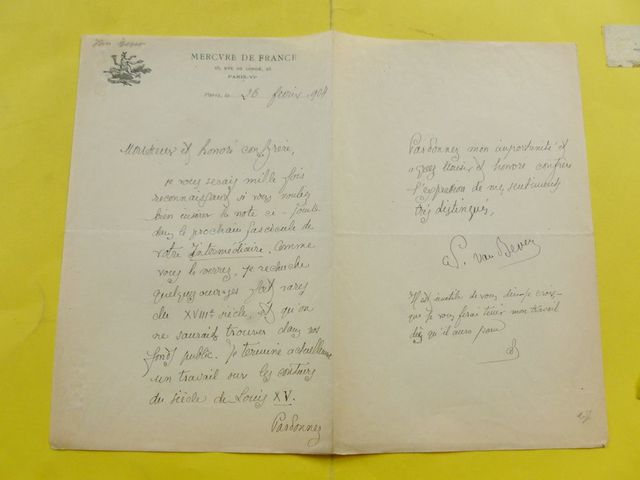 Van Bever
MERCVRE DE FRANCE
26, RVE DE CONDÉ, 26
PARIS-VIe
Paris, le 26 février 1904
Monsieur et honoré confrère,
je vous serais mille fois
reconnaissant si vous vouliez
bien insérer la note ci-jointe
dans le prochain fascicule de
votre Intermédiaire. Comme
vous le verrez, je recherche
quelques ouvrages fort rares
du XVIIIe siècle, et qu'on
ne saurait trouver dans nos
fonds public. Je termine actuellement
un travail sur les conteurs
du siècle de Louis XV.
Pardonnez
Pardonnez mon importunité et
agréez Monsieur et honoré confrère
l'expression de mes sentiments
très distingués,
Ad. van Bever
Il est inutile de vous dire
que je vous ferai tenir mon travail
dès qu'il aura paru